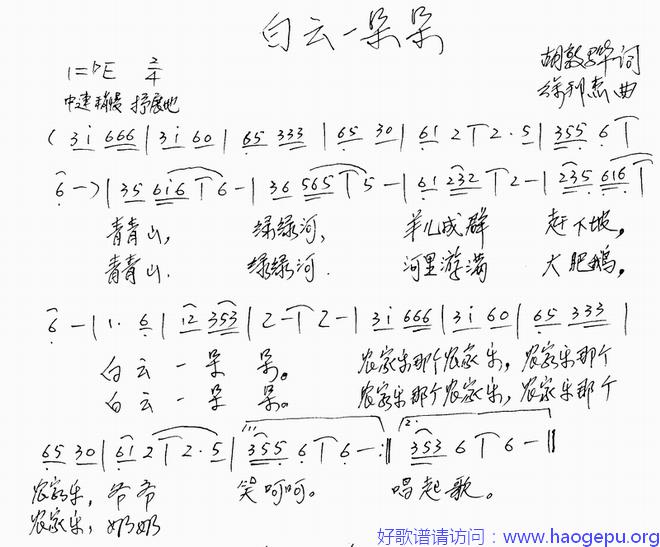 白云一朵朵
1=bE 2/4
胡敦骅词
中速稍慢 抒展地
徐利杰曲
( 3i 666 | 3i 60 | 65 333 | 65 30 | 61 2 | 2·5 | 355 6 |
6 -) | 35 616 | 6 - | 36 565 | 5 - | 61 232 | 2 - | 235 616 |
青青山, 绿绿河, 羊儿成群 赶下坡,
青青山. 绿绿河. 河里游满 大肥鹅,
6 - | 1· 6 | 12 353 | 2 - | 2 - | 3i 666 | 3i 60 | 65 333 |
白云一朵朵。 农家乐那个农家乐, 农家乐那个
白云一朵朵。 农家乐那个农家乐, 农家乐那个
65 30 | 61 2 | 2·5 | 355 6 | 6 - :|| 353 6 | 6 - ||
农家乐, 爷爷 笑呵呵。 唱起歌。
农家乐, 奶奶
好歌谱请访问：www.haogepu.org